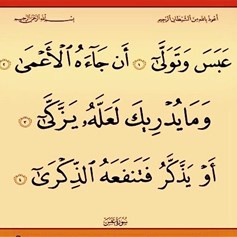 أعوذ بالله من الشيطان الرجيم
بسم الله الرحمن الرحيم
عَبَسَ وَتَوَلَّىٰٓ ١ أَن جَآءَهُ ٱلْأَعْمَىٰ ٢
وَمَا يُدْرِيكَ لَعَلَّهُۥ يَزَّكَّىٰٓ ٣
أَوْ يَذَّكَّرُ فَتَنفَعَهُ ٱلذِّكْرَىٰٓ ٤
سورة عبس